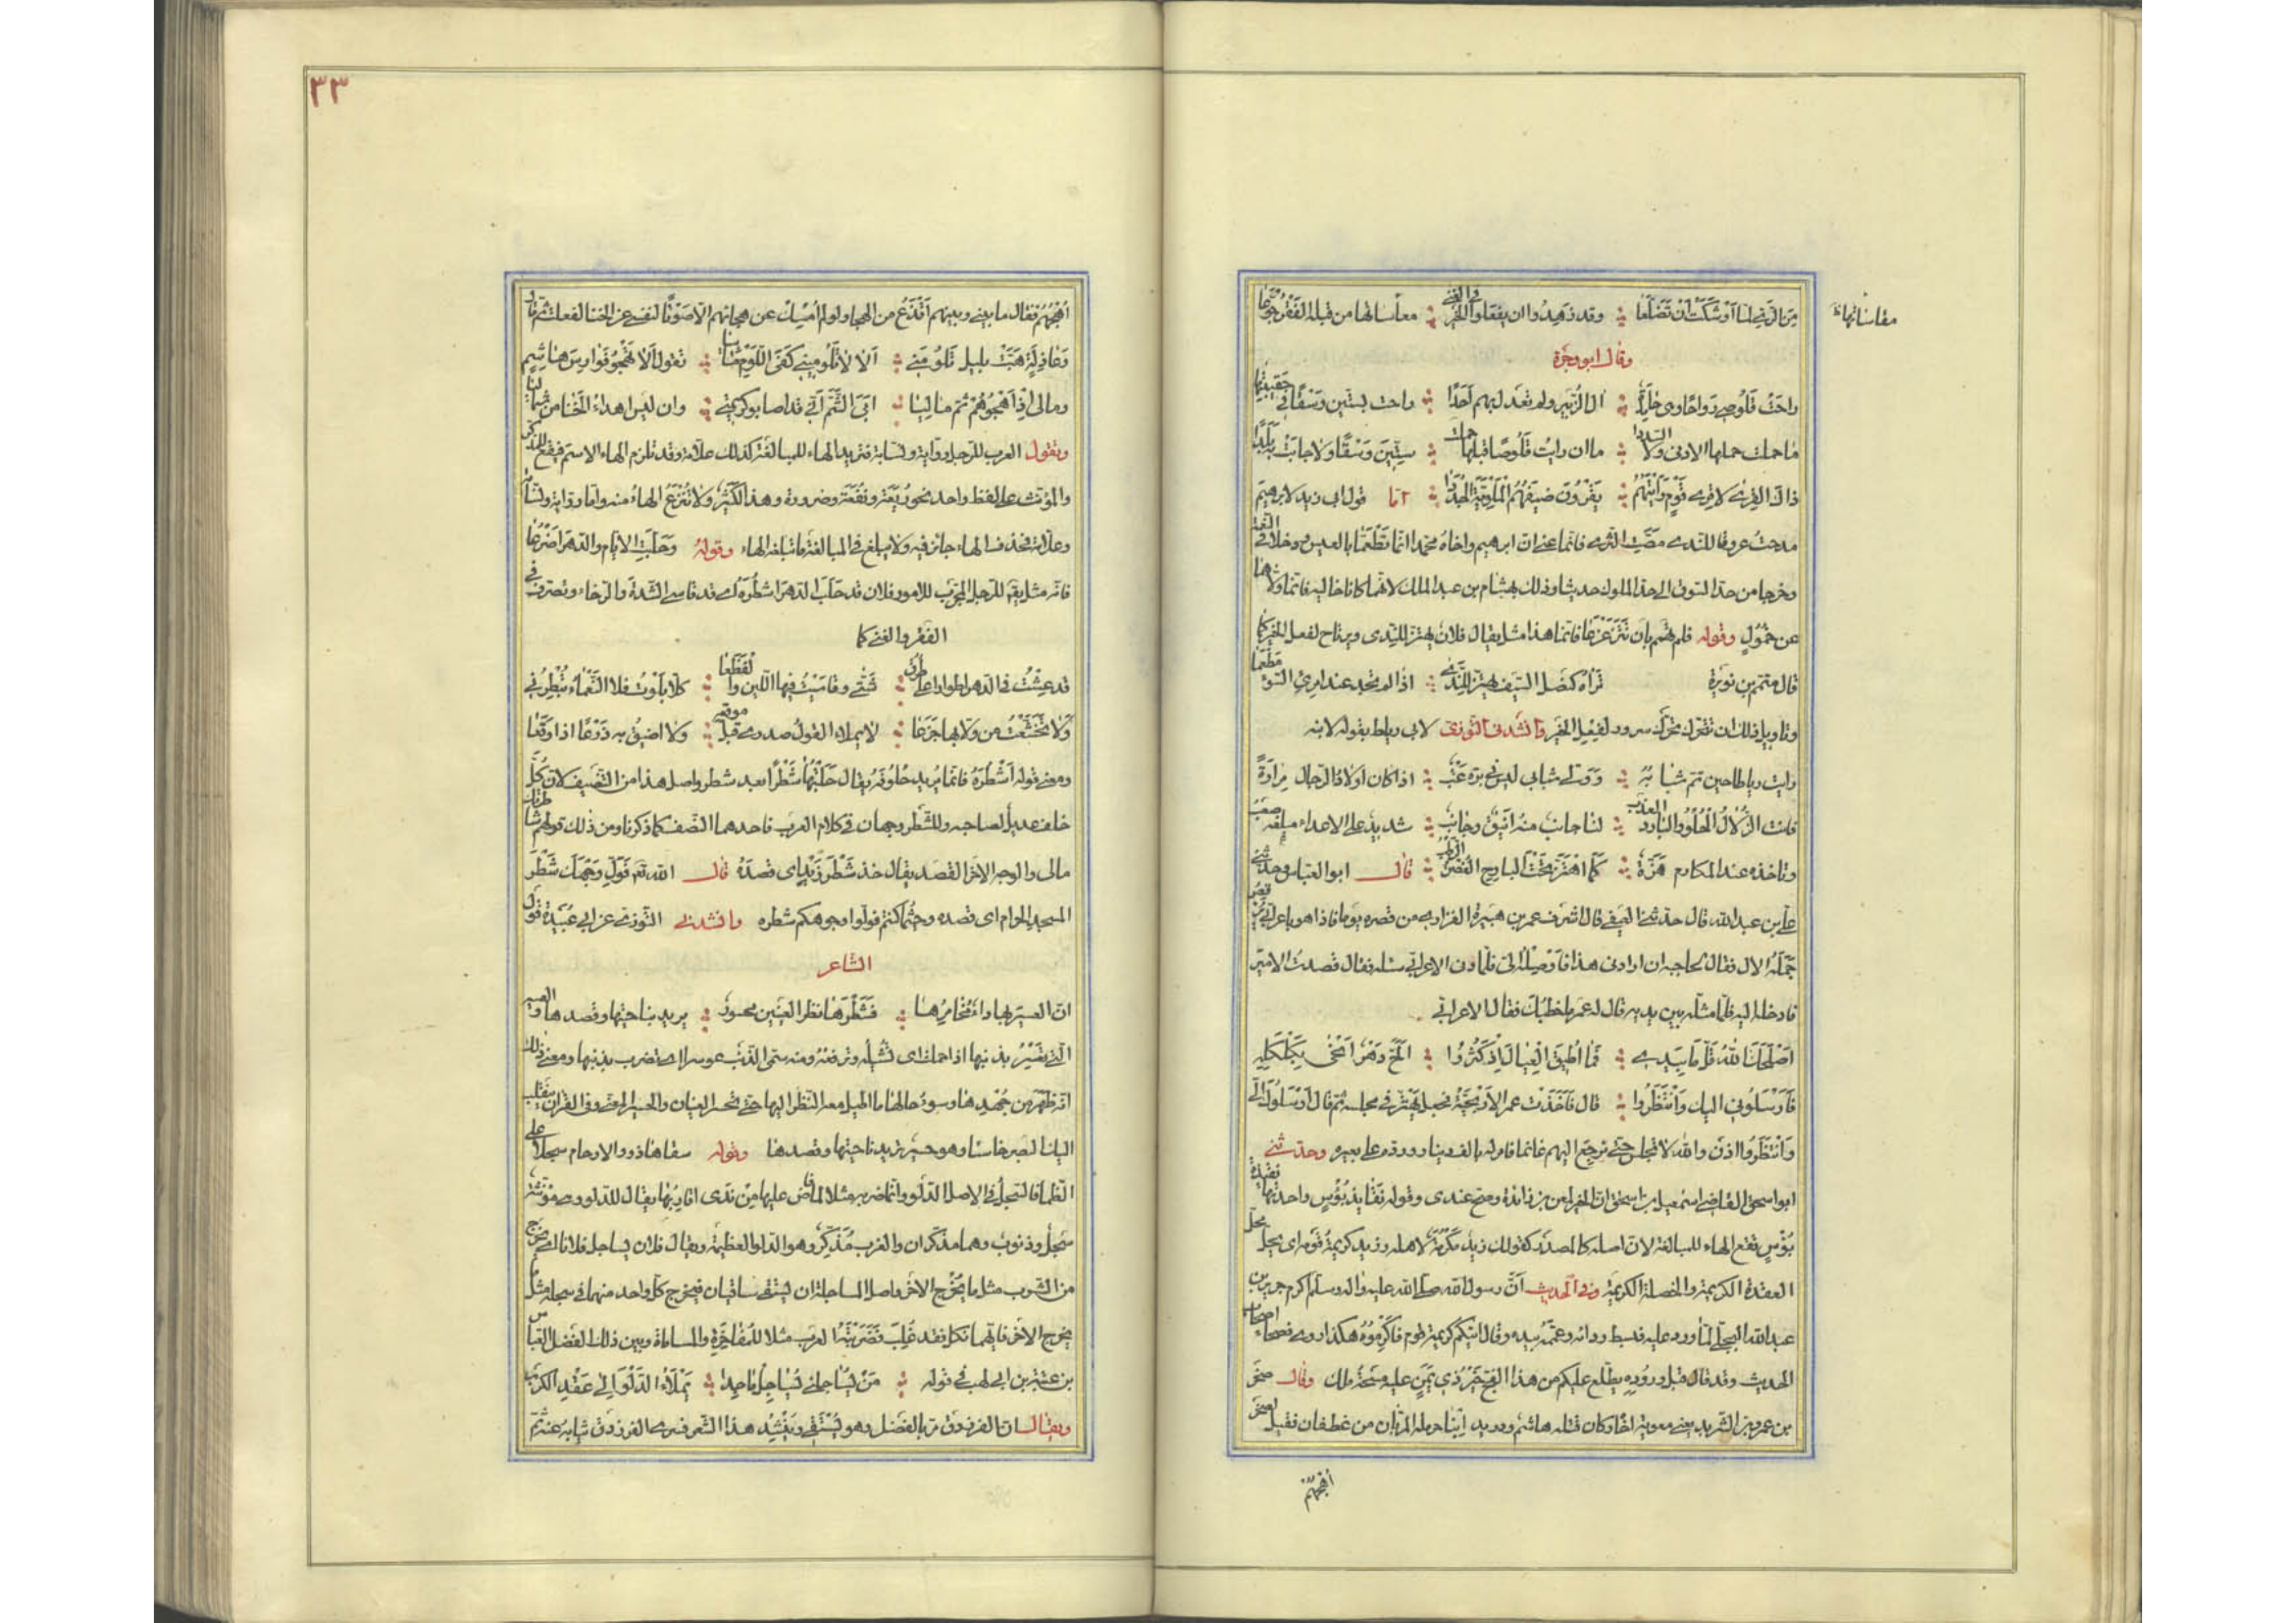 من الريّ لما اوشكت ان تضلعا وقد زهيدوا ان يفقاوا الخير والغنى معا سالها من قبله الفقر جوعا
مقاساتها
وقال ابو وجزة
راحت قلوصى رواحا وهى حامدة ال الزبير ولم تعدل بهم احدا راحت بستين وسقا فى حقيبتها
ما حملت حملها الادنى ولا السددا ما ان رايت قلوصا قبلها حملت ستين وسقا ولا جابت به بلدا
ذاك القرى لا قرى قوم رأيتهم يقرون ضيفهم الملوية الجددا اما قول ابى زيد لابرهيم
مدحت عروقا للندى مصت الثرى فانما عنى ان ابرهيم واخاه محمدا انما تطعما بالعيش ودخلا فى النعمة
وخرجا من حد السوق الى حد الملوك حديثا وذلك بهشام بن عبد الملك لانهما كانا خاليه فانما ولاهما
عن خمول وقوله فلم تهمم بان تتزعزعا فانما هذا مثل يقال فلان يهتز للندى ويرتاح لفعل الخير كما
قال متمم بن نويرة تراه كنصل السيف يهتز للندى اذا لم تجد عند امرئ السوء مطمعا
وتاويل ذلك ان تتحرك تحرك سرور لفعل الخير وانشدنى التوزى لابى رباط يقوله لابنه
رايت رباطا حين تم شبابه وولى شبابى ليس فى بره عتب اذا كان اولاد الرجال حزازة
فانت الزلال الحلو والبارد العذب لنا جانب منه انيق وجانب شديد على الاعداء مبلغه صعب
وتاخذه عند المكارم هزة كما اهتز تحت البارح الغصن الرطب قال ابو العباس وحدثنى
على بن عبد الله قال حدثنى العتبى قال اشرف عمر بن هبيرة الفزارى من قصره يوما فاذا هو باعرابى يرقص
جمله الال فقال لحاجبه ان ارادنى هذا فاوصله الى فلما دنا الاعرابى سئله فقال قصدت الامير
فادخله اليه فلما مثل بين يديه قال له عمر ما خطبك فقال الاعرابى
اصلحك الله قل ما بيدى فما اطيق العيال اذ كثروا الح دهر انحى بكلكله
فارسلونى اليك وانتظروا قال فاخذت عمر الاريحية فجعل يهتز فى مجلسه ثم قال ارسلوك الى
وانتظروا اذن والله لا تجلس حتى ترجع اليهم غانما فامر له بالف دينار ورده على بعيره وحدثنى
ابو اسحق القاضى اسمعيل بن اسحق ان الخبر لمعن بن زائدة وصح عندى وقوله نقايذ بؤس واحدتها نقيذة
بؤس تقع الهاء للمبالغة لان اصله كالمصدر كقولك زيد مكرمة لاهله وزيد كريمة قومه اى يحل محل
العقدة الكريمة والخصلة الكريمة وفى الحديث ان رسول الله صلى الله عليه واله وسلم اكرم جرير بن
عبد الله البجلى لما ورد عليه فبسط رداءه وعممه بيده وقال اذا اتيكم كريمة قوم فاكرموه هكذا روى فصحاء اصحاب
الحديث وقد قال قبل وروده يطلع عليكم من هذا الفج خير ذى يمن عليه مسحة ملك وقال صخر
بن عمرو بن الشريد يعنى معوية اخاه وكان قتله هاشم ودريد ابنا حرملة المريان من غطفان فقيل لصخر
اهجهم
٣٣
اهجهم فقال ما بينى وبينهم اقذع من الهجاء ولو لم امسك عن هجائهم الا صونا لنفسى عن الخنا لفعلت ثم قال
وعاذلة هبت بليل تلومنى الا لا تلومينى كفى اللوم ما بيا تقول الا تهجو فوارس هاشم
ومالى اذا اهجوهم ثم ماليا ابى الشتم انى قد اصابوا كريمتى وان ليس اهداء الخنا من شماليا
وتقول العرب للرجل رواية ونسابة فتزيد الهاء للمبالغة كذلك علامة وقد تلزم الهاء الاسم فيقع للمذكر
والمؤنث على لفظ واحد نحو ربعة ونفعة وضرورة وهذا كثير ولا تنزع الهاء منه واما رواية ونسابة
وعلامة فحذف الهاء جائز فيه ولا يبلغ فى المبالغة ما تبلغه الهاء وقوله وحلبت الايام والدهر اضرعا
فانه مثل يقال للرجل المجرب للامور فلان قد حلب الدهر اشطره اى قد قاسى الشدة والرخاء وتصرف فى
الفقر والغنى كما
قد عشت فى الدهر اطوارا على طرق شتى وقاسيت فيها اللين والفظعا كلا بلوت فلا النعماء تبطرنى
ولا تخشعت من لاوائها جزعا لا يملاء القول صدرى قبل موقعه ولا اضيق به ذرعا اذا وقعا
ومعنى قوله اشطره فانما يريد خلوفه يقال حلبتها شطرا بعد شطر واصل هذا من التنصيف لان كل
خلف عديل لصاحبه وللشطر وجهان فى كلام العرب فاحدهما النصف كما ذكرنا ومن ذلك قولهم شاطرتك
مالى والوجه الاخر القصد يقال خذ شطر زيد اى قصده قال الله تعم فول وجهك شطر
المسجد الحرام اى قصده وحيثما كنتم فولوا وجوهكم شطره وانشدنى التوزى عن ابى عبيدة قول
الشاعر
ان العسير بها داء مخامرها فشطرها نظر العينين محسور يريد بناحيتها وقصدها والعسير
التى تعسر بذنبها اذا حملت اى تشيله وترفعه ومنه سمى الذئب عوسرا اى تضرب بذنبها ومعنى ذلك
انه ظهر من جهدها وسوء حالها ما اطيل معه النظر اليها حتى تحسر العينان والحسير المعيى وفى القران ينقلب
اليك البصر خاسئا وهو حسير يريد ناحيتها وقصدها وقوله سقاها ذوو الارحام سجلا على
الظما فالسجل فى الاصل الدلو وانما ضربه مثلا لما فاض عليها من ندى اقاربها يقال للدلو وهى مؤنثة
سجل وذنوب وهما مذكران والغرب مذكر وهو الدلو العظيمة ويقال فلان يساجل فلانا اى يخرج
من الشرب مثل ما يخرج الاخر واصل المساجلة ان يستقى ساقيان فيخرج كل واحد منهما فى سجله مثل ما
يخرج الاخر فايهما نكل فقد غلب فضربته العرب مثلا للمفاخرة والمساماة وبين ذلك الفضل العباس
بن عتبة بن ابى لهب فى قوله من يساجلنى يساجل ماجدا يملاء الدلو الى عقد الكرب
ويقال ان الفرزدق مر بالفضل وهو يستقى وينشد هذا الشعر فسرى الفرزدق ثيابه عنه ثم